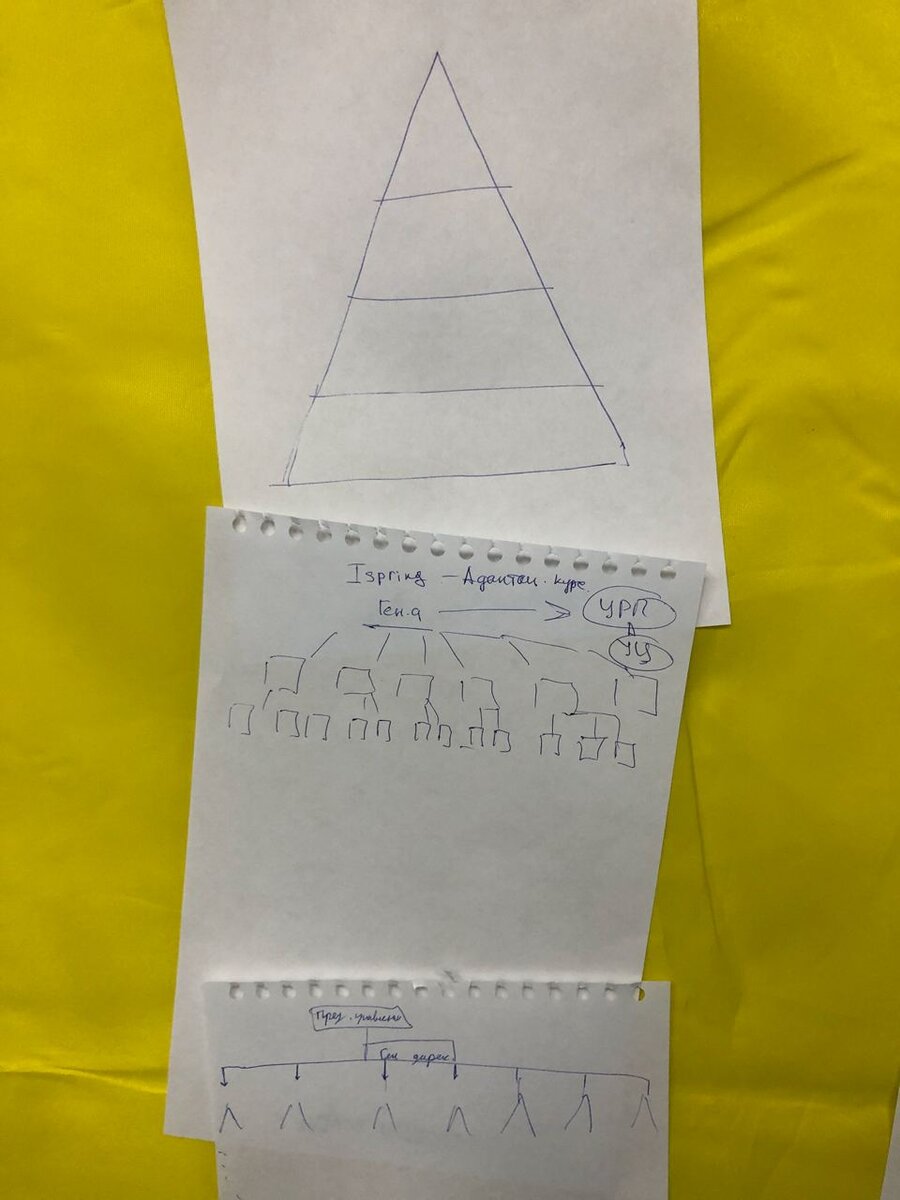 Ispring - Адаптац. курс.
Ген.д
УРП
УЦ
През. правлени
Ген дирек.